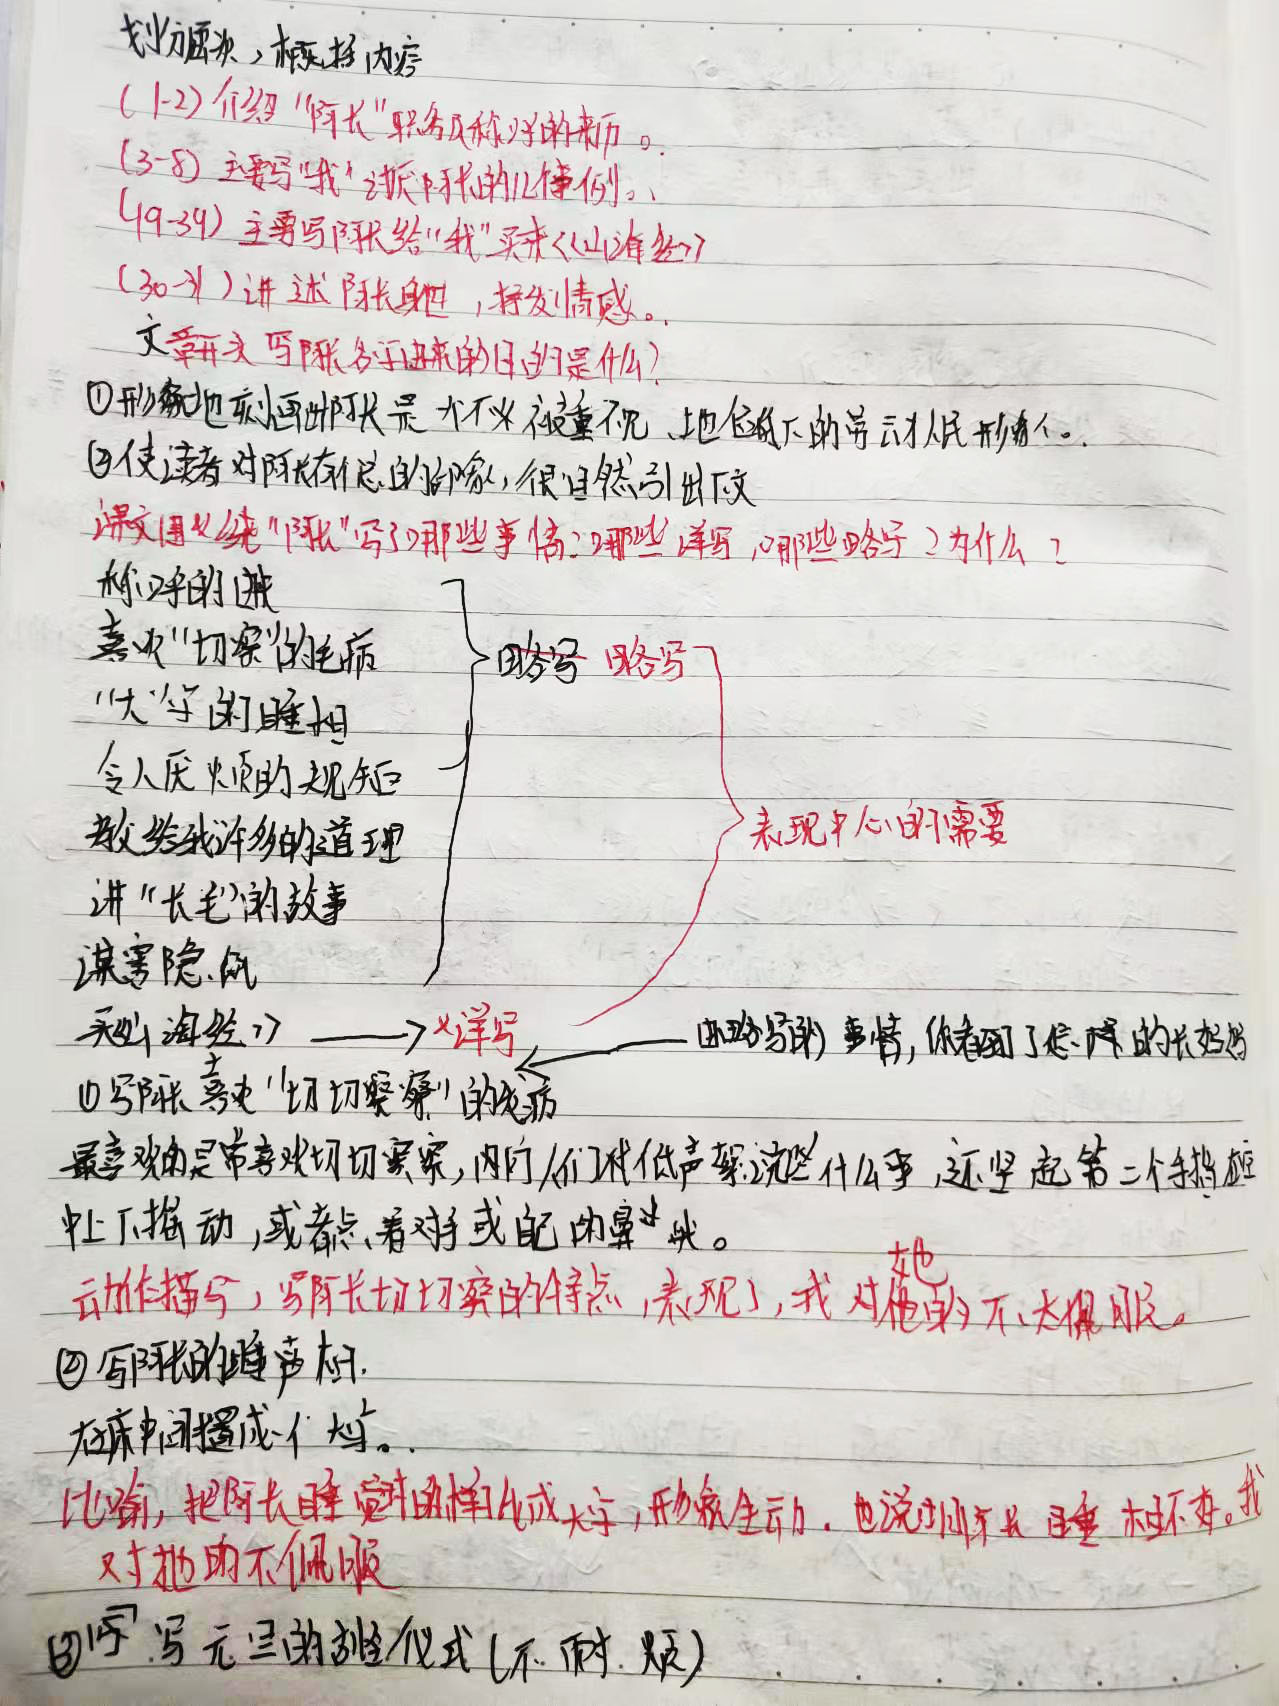 划分层次,概括内容
(1-2)介绍"阿长"职务及称呼的来历。
(3-8)主要写"我"讨厌阿长的几件事例。
(19-39)主要写阿长给"我"买来《山海经》
(30-31)讲述阿长身世,抒发情感。
文章开头写阿长名字由来的目的是什么?
①形象地刻画出阿长是一个不被重视、地位低下的劳动人民形象。
②使读者对阿长有个总的印象,很自然引出下文
课文围绕"阿长"写了哪些事情?哪些详写,哪些略写?为什么?
称呼的由来
喜欢"切察"的毛病
"大"字的睡相 略写 略写
令人厌烦的规矩
教给我许多的道理 表现中心的需要
讲"长毛"的故事
谋害隐鼠
买《山海经》 详写 由略写的事情,你看到了怎样的长妈妈
①写阿长喜欢"切切察察"的毛病
最喜欢的是常喜欢切切察察,向人们低声絮说些什么事,还竖起第二个手指在空
中上下摇动,或者点着对手或自己的鼻尖。
动作描写,写阿长切切察察的特点,表现了,我对她的不大佩服。
②写阿长的睡相.
在床中间摆成一个大字。
比喻,把阿长睡觉时的样子比成大字,形象生动.也说出阿长睡相不好。我
对她的不佩服
③写元旦的古怪仪式(不耐烦)